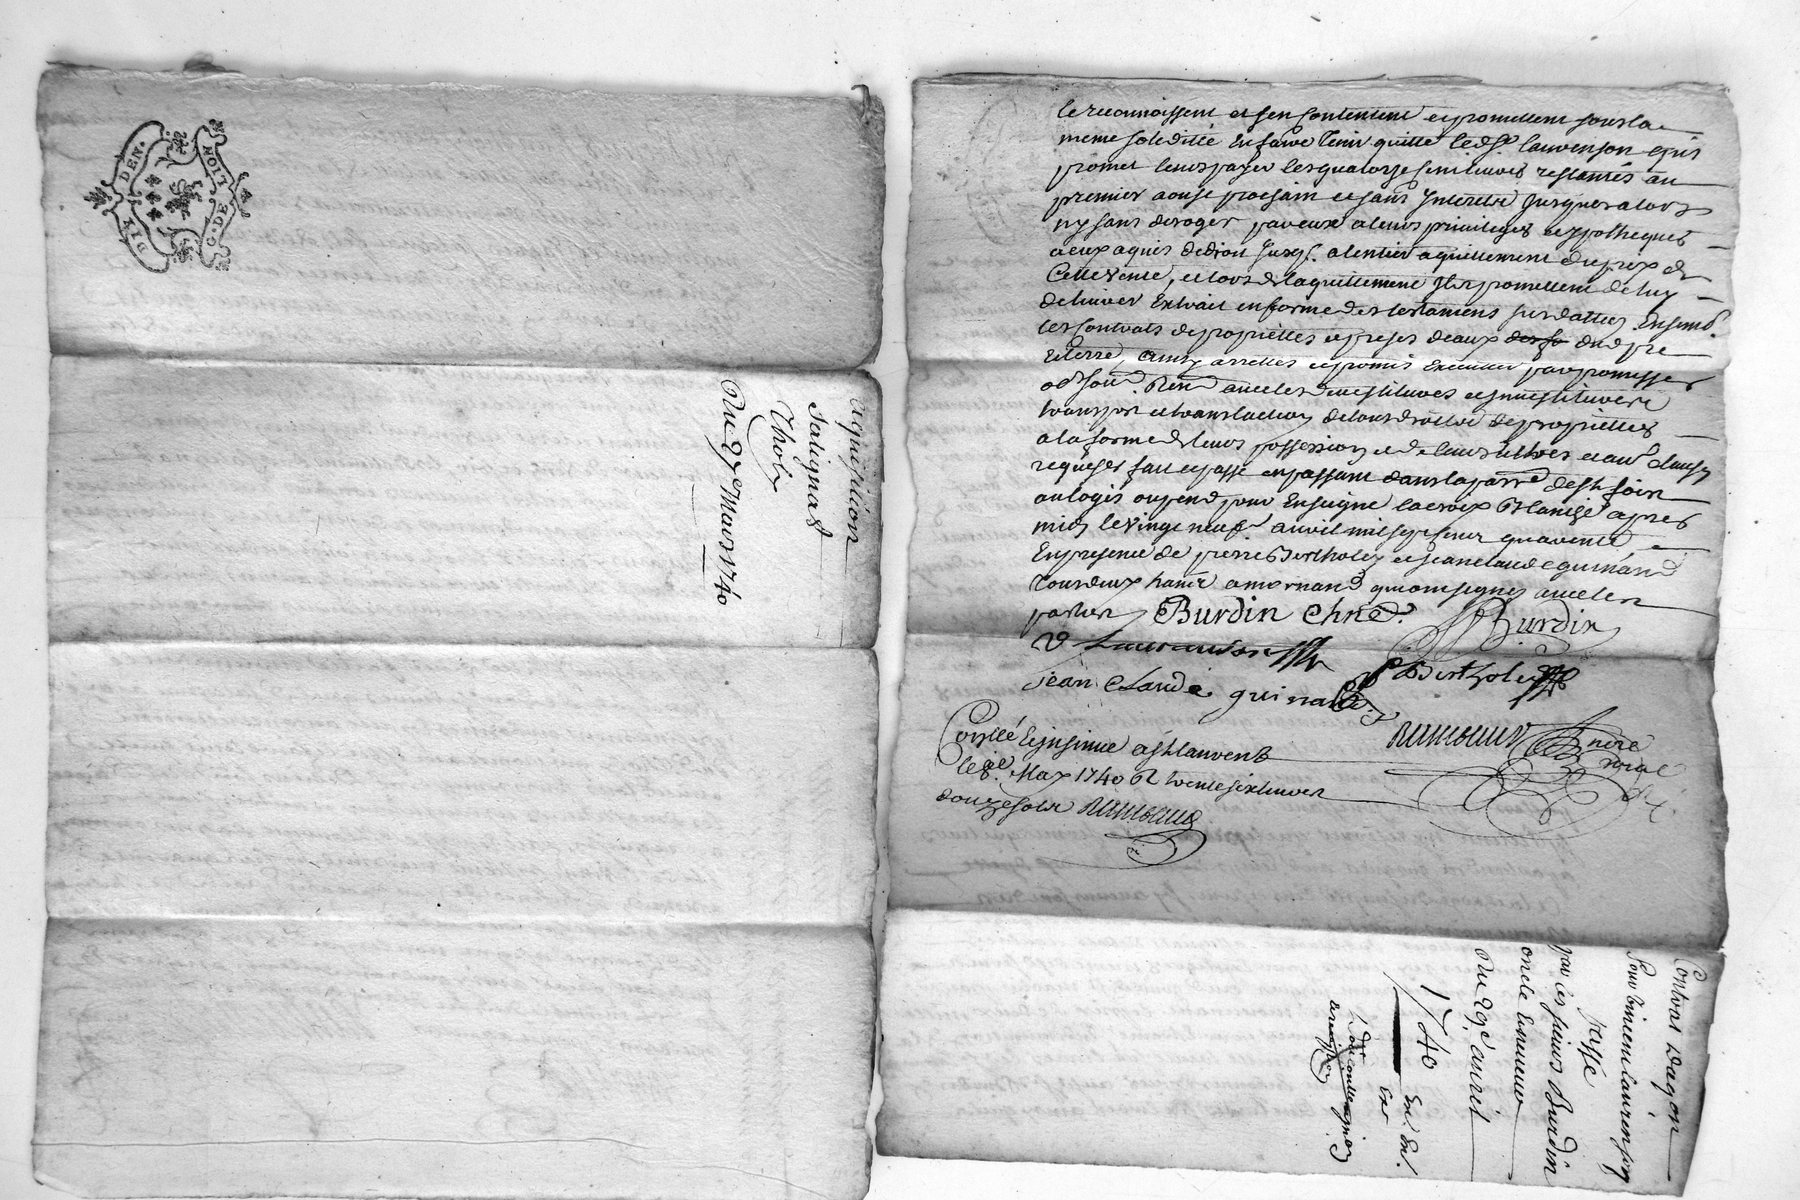 DIX DEN.
G. DE NOIT
acquisition
Salignat
Thol
Du 27e Mars 1740
le reconnoissent et sen contentent et promettent sous la
meme soliditté en faire tenir quitte led Sr laurenson qui
promet leur payer les quatorze cent livres restantes au
premier aoust prochain et sans Interetst Jusques alors
ny sans deroger par eux a leurs privileges et ypotheques
a eux aquis de droit Jusq. a lentier aquittement du prix de
Cette vente, et lors de laquittement Ils promettent de luy
delivrer Extrait en forme des testamens sus dattes, Ensemb.
les Contrats de proprietes et pieces deaux du d pre
et terre, ainsy arrettes et promis executer par promesses
transport et translation de tous droits de proprietes
a la forme de leurs possessions et de leurs titres et aut clauses
requises fait et passé en passant dans la parr de St foin
au logis ou pend pour Enseigne la croix Blanche apres
midy le vingt neuf avril mil sept cent quarente
En presence de pierre Bertholey et Jean claude guinand
tous deux hants a mornand qui ont signes avec les
parties Burdin Chne. Burdin
V Lauranson Bertholey
jean claude guinand
Conllé Et insinué a St laurent
le 8e May 1740 R trente six livres
douze sols
nore
royal
Contrat daqon
Pour vincent laurenson
passé
par les srs Burdin
oncle Et neveu
Du 29e avril
1740